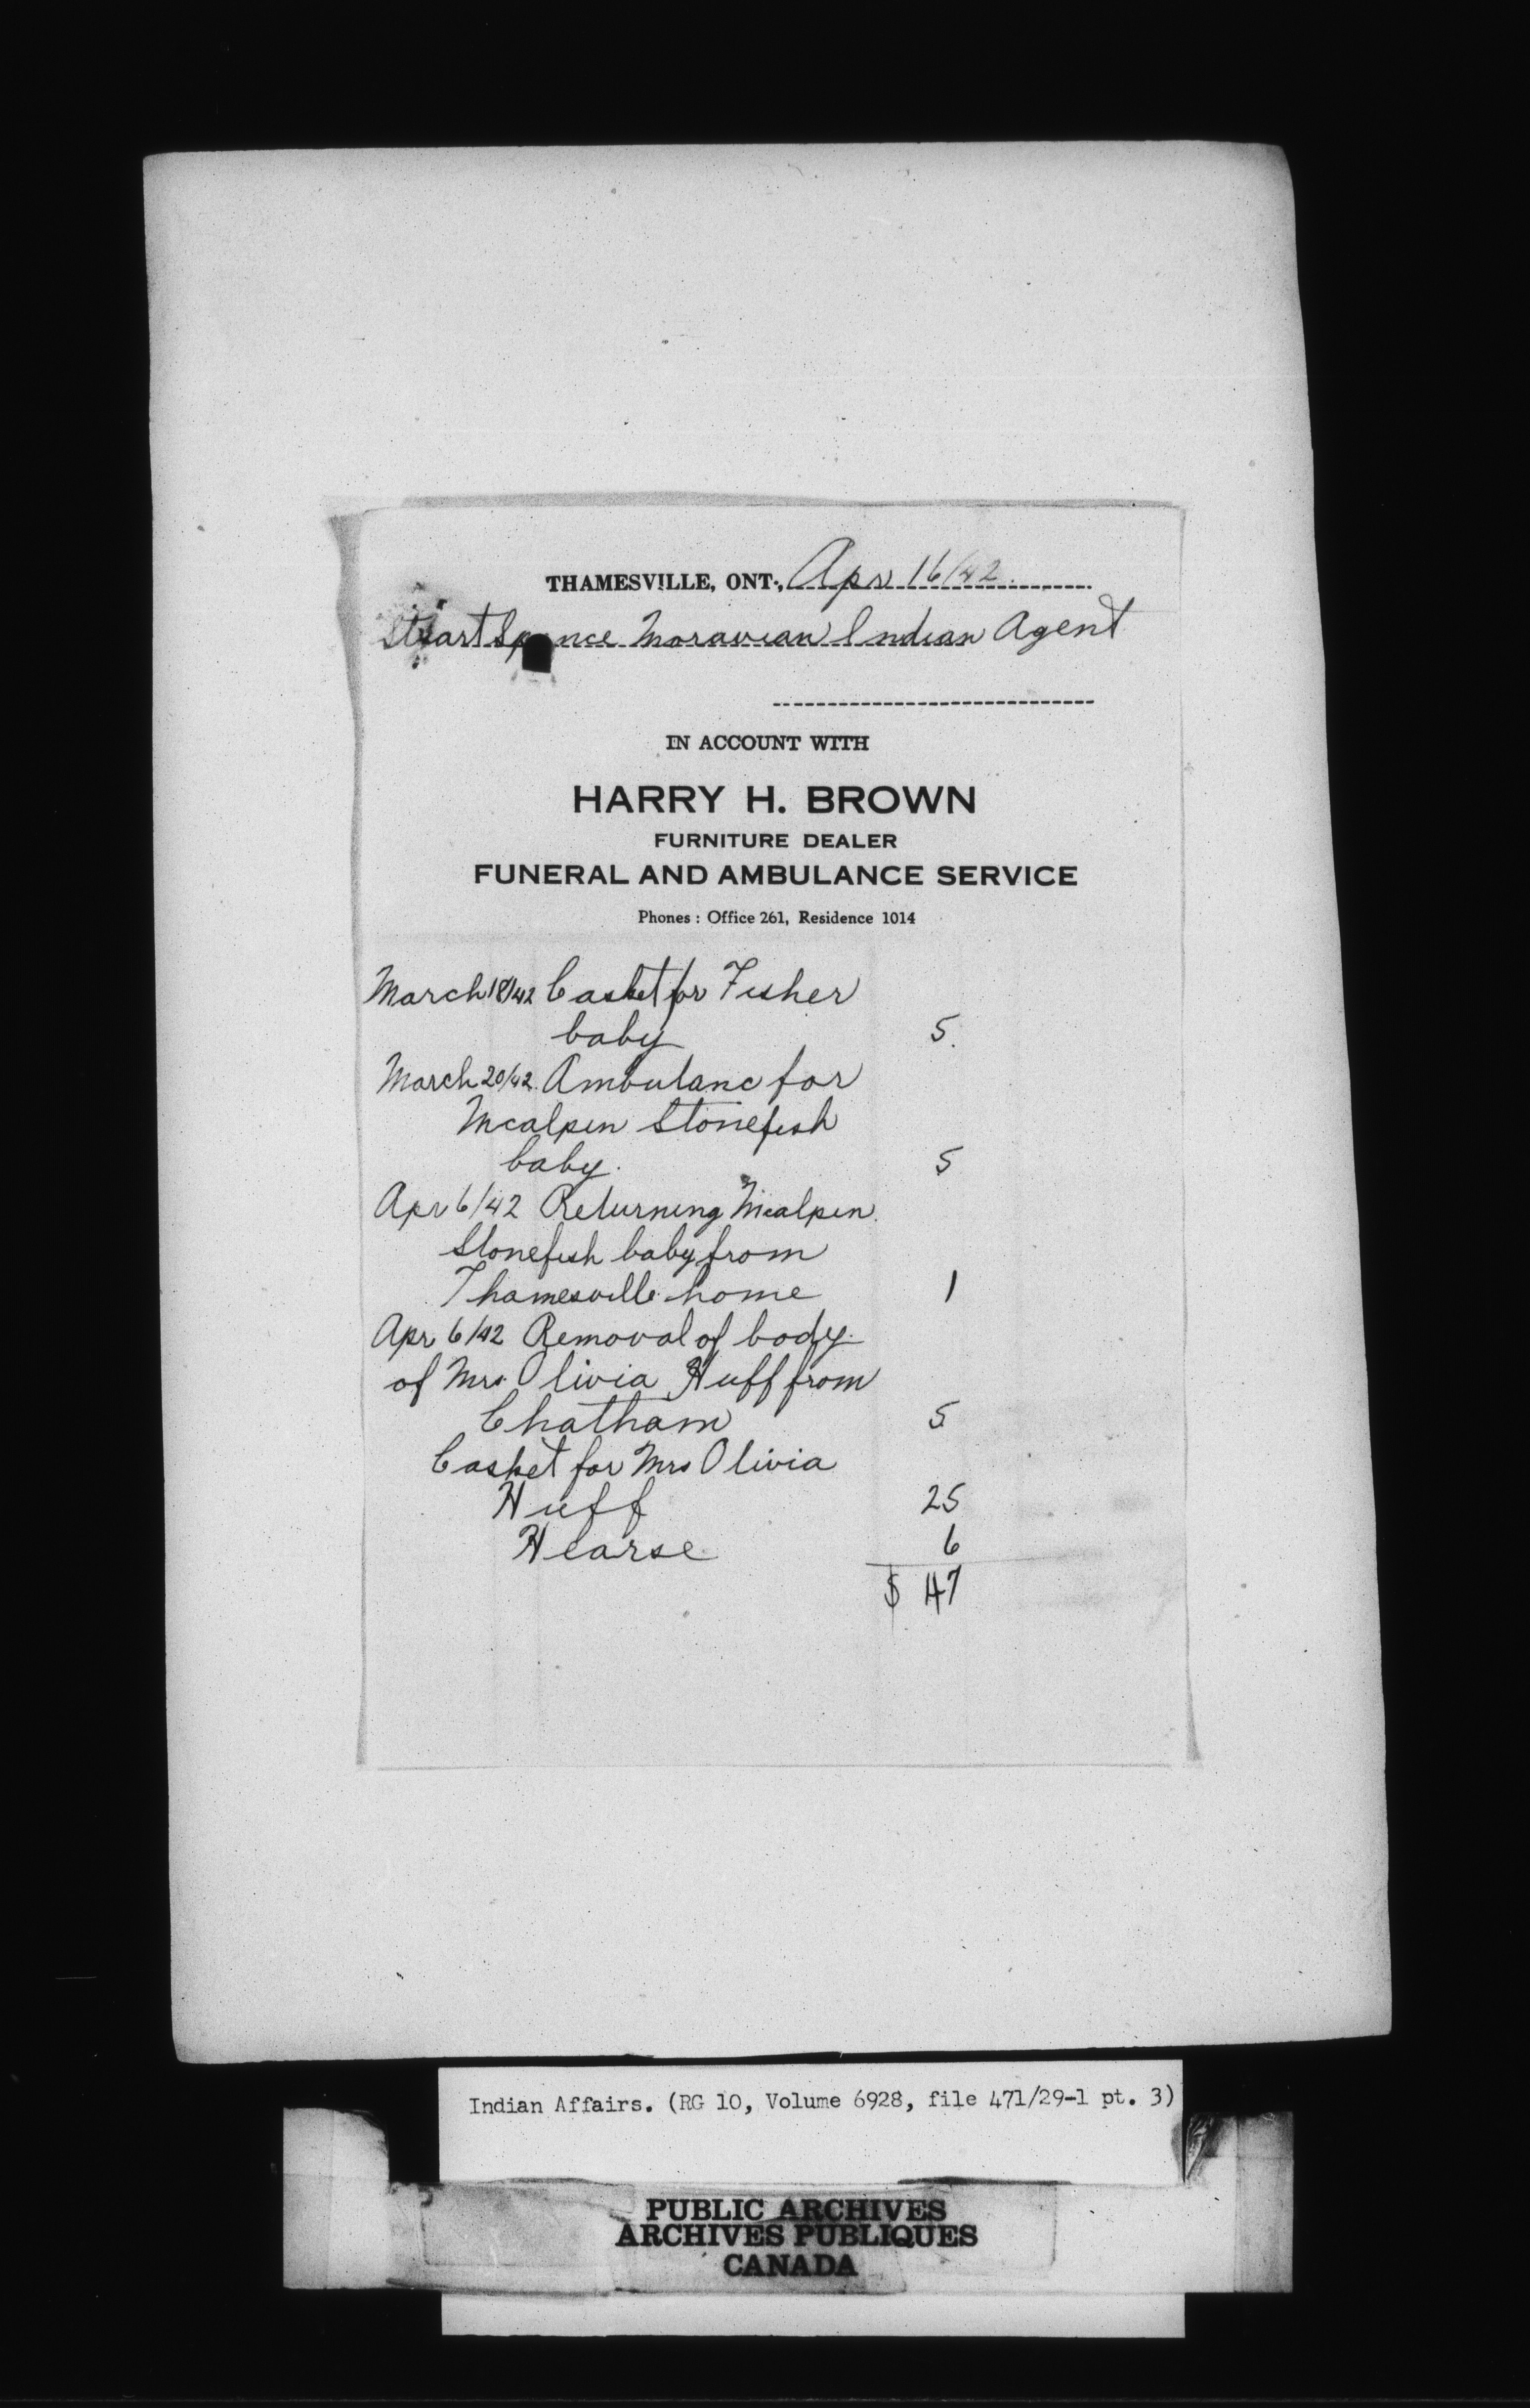 THAMESVILLE, ONT., Apr 16/42
Stuart Spence Moravian Indian Agent
IN ACCOUNT WITH
HARRY H. BROWN
FURNITURE DEALER
FUNERAL AND AMBULANCE SERVICE
Phones : Office 261, Residence 1014
March 18/42 Casket for Fisher
baby 5.
March 20/42. Ambulanc for
Mcalpin Stonefish
baby. 5
Apr 6/42 Returning Mcalpin.
Stonefish baby from
Thamesville home 1
Apr 6/42 Removal of body.
of Mrs. Olivia Huff from
Chatham 5
Casket for Mrs Olivia
Huff 25
Hearse 6
$ 47
Indian Affairs. (RG 10, Volume 6928, file 471/29-1 pt. 3)
PUBLIC ARCHIVES
ARCHIVES PUBLIQUES
CANADA